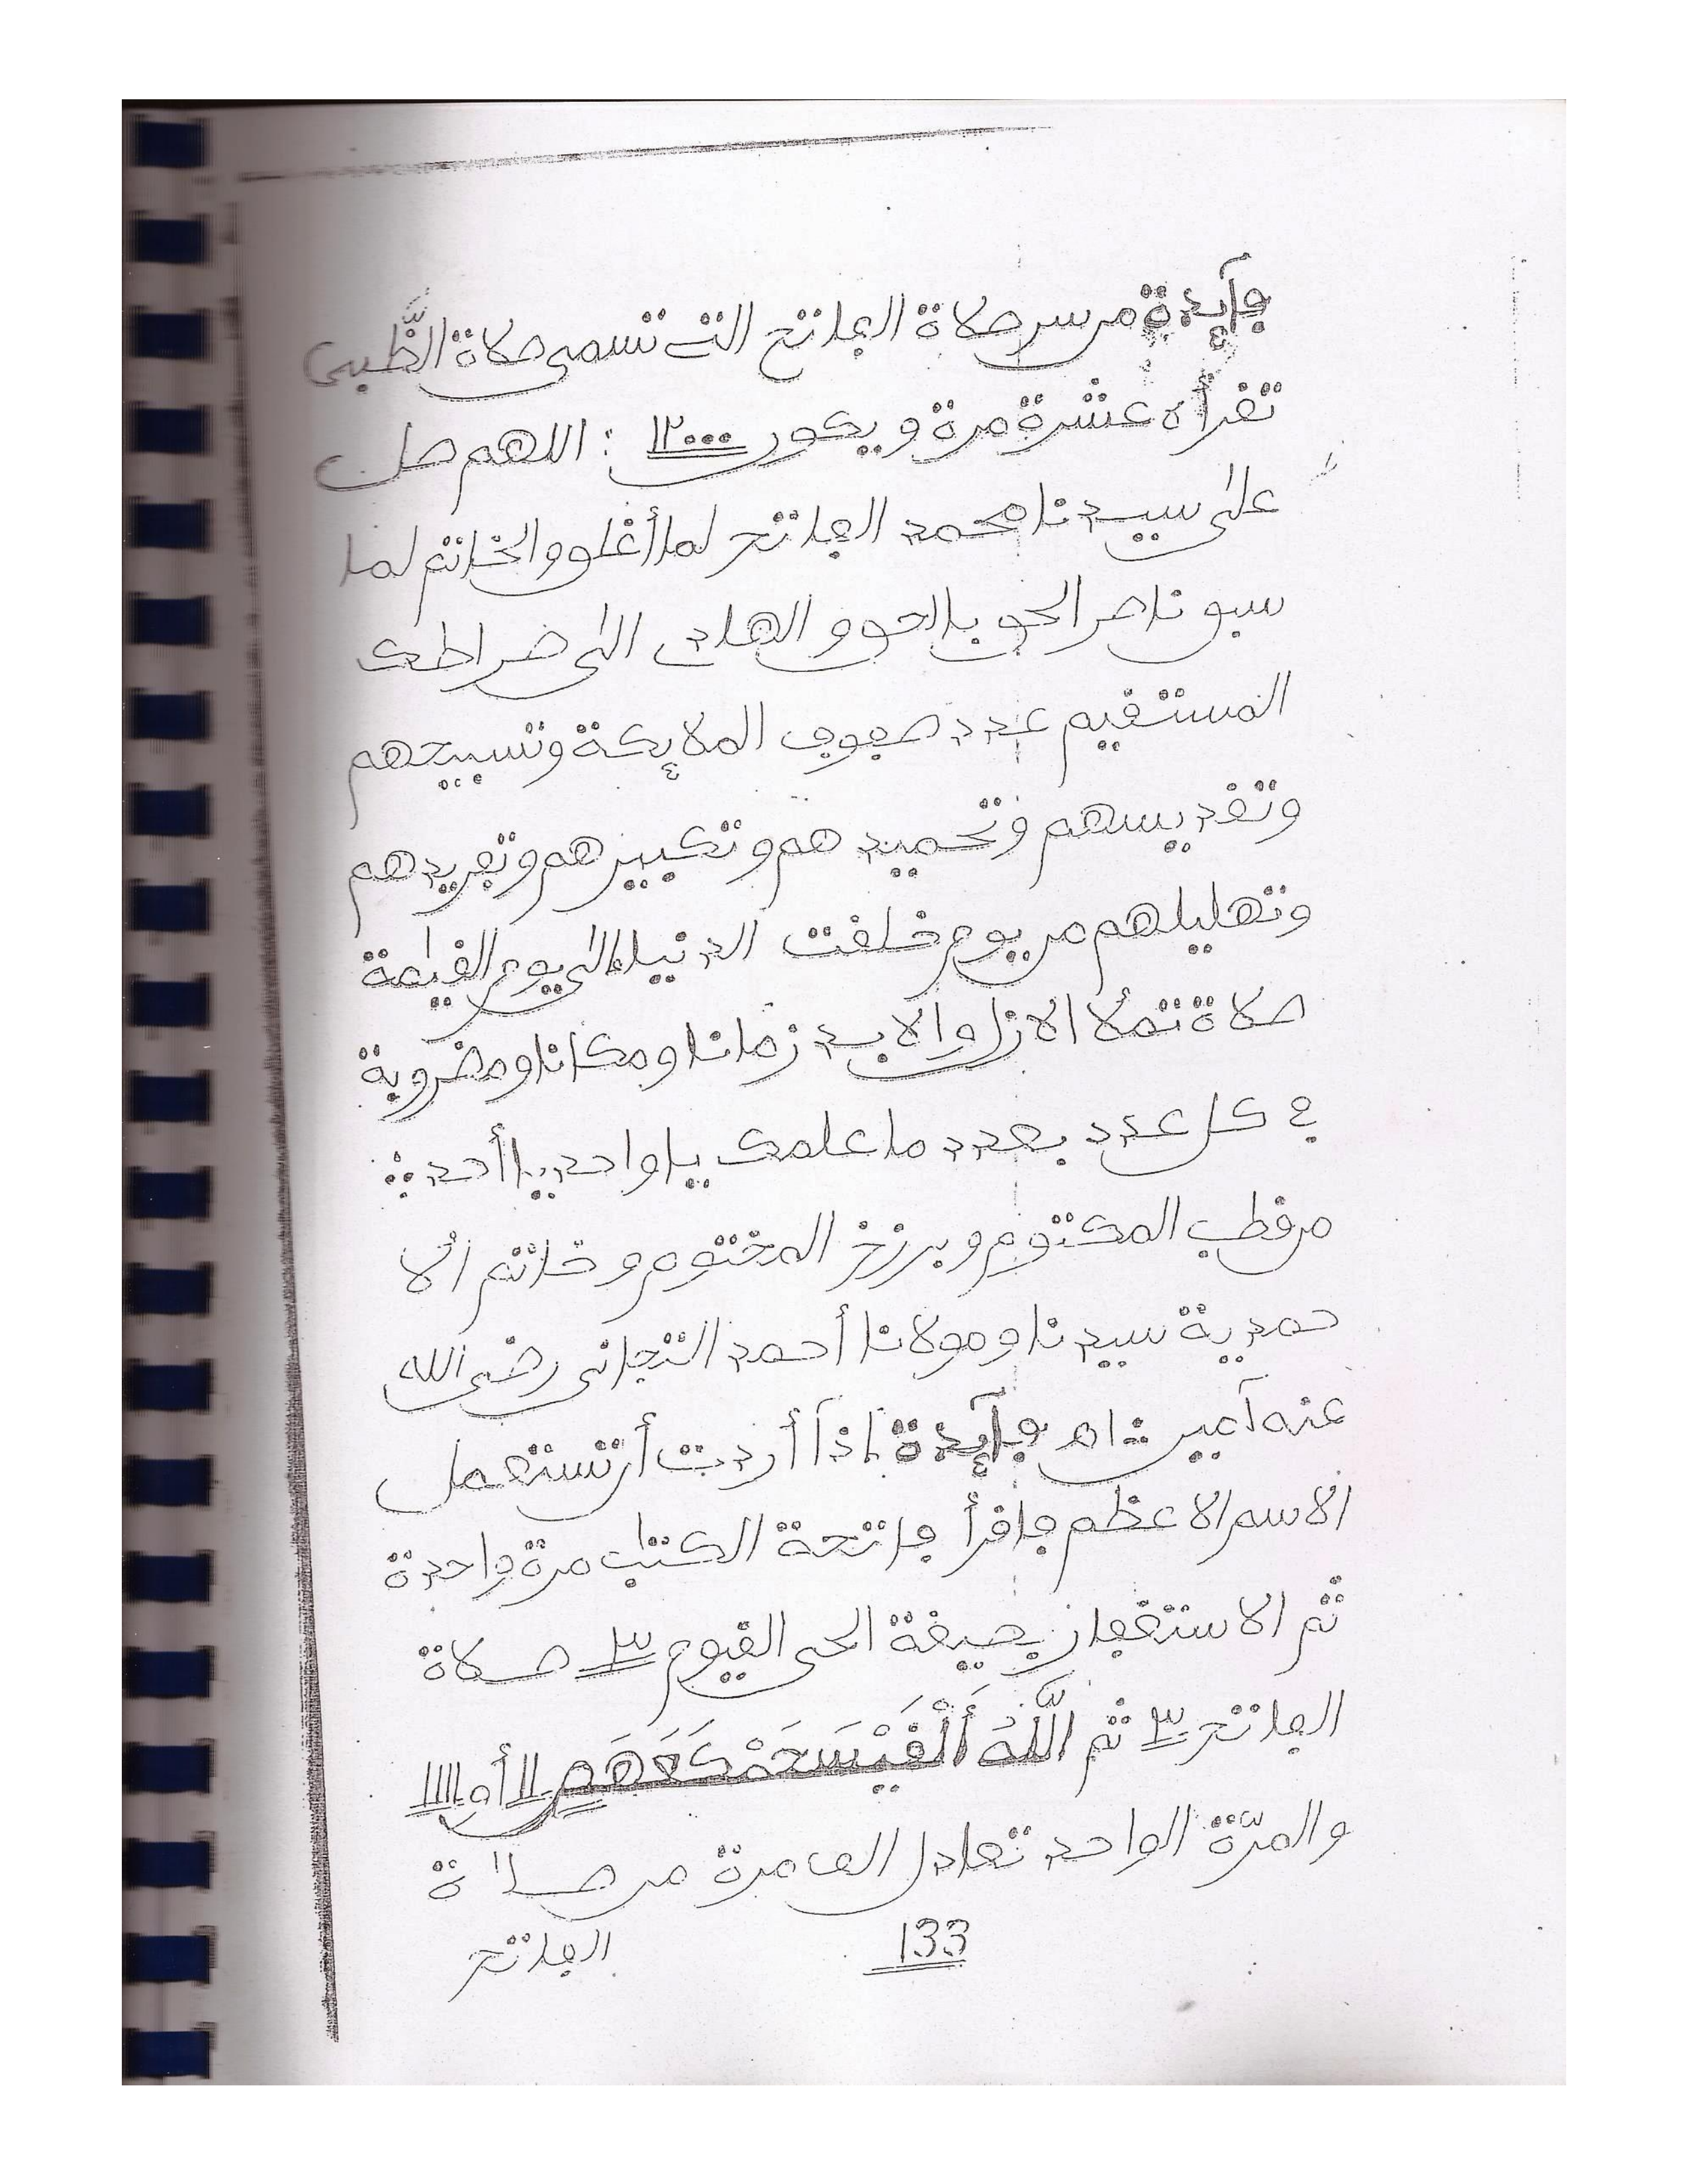 فآئدة من سر صلاة الفاتح التي تسمى صلاة الظبي
تقرأه عشرة مرة ويكون ١٢٠٠٠ : اللهم صل
على سيدنا محمد الفاتح لما أغلق والخاتم لما
سبق ناصر الحق بالحق و الهادي إلى ضراطك
المستقيم عدد صفوف الملائكة وتسبيحهم
وتقديسهم وتحميد هم وتكبير هم وتفريدهم
وتهليلهم من يوم خلقت الدنيا إلى يوم القيمة
صلاة تملأ الازل والابد زمانا ومكانا ومضروبة
في كل عدد بعدد ما علمك يا واحد يا أحد
من قطب المكتوم وبرزخ المختوم و خاتم الا
حمدية سيدنا ومولانا أحمد التجاني رضي الله
عنه آمين اه فآئدة إذآ أردت أن تستعمل
الاسم الاعظم فاقرأ فاتحة الكتاب مرة واحدة
ثم الاستغفار بصيغة الحي القيوم ٣ صلاة
الفاتح ٣ ثم اللَّهُ
والمرّة الواحد تعادل الف مرة من صلاة
133 الفاتح